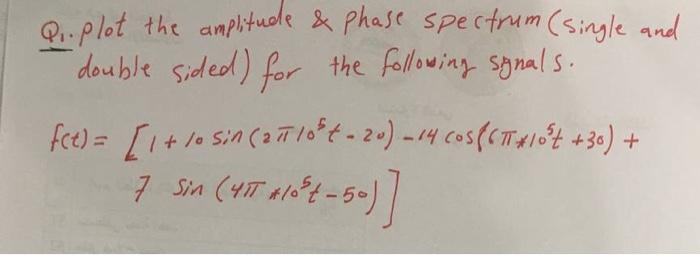 Q1. plot the amplitude & phase spectrum (single and
double sided) for the following signals.
f(t) = [1 + 10 sin (2π10⁵t - 20) - 14 cos(6π*10⁵t + 30) +
7 sin (4π*10⁵t - 50)]